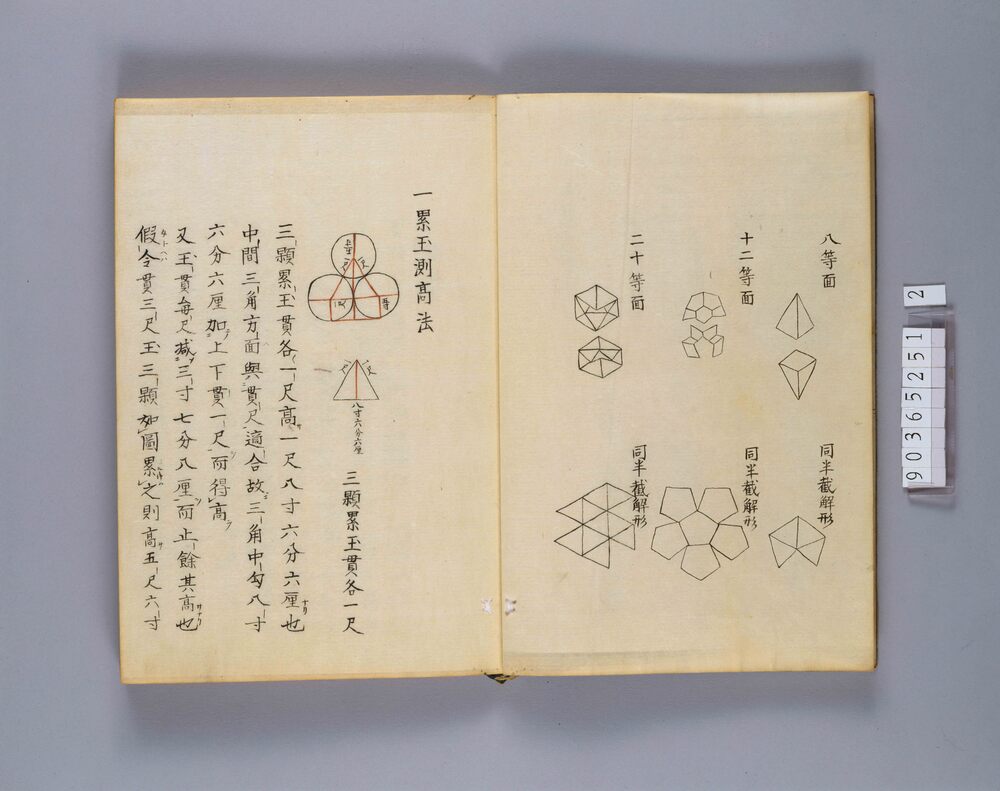 八等面
同半截解形
十二等面
同半截解形
二十等面
同半截解形
一累玉測高法
八寸六分六厘
三顆累玉貫各一尺
三顆累玉貫各一尺高一尺八寸六分六厘也
中間三角方面與貫尺適合故三角中勾八寸
六分六厘加上下貫一尺而得高
又玉貫每尺減三寸七分八厘而止餘其高也
假令貫三尺玉三顆如圖累之則高五尺六寸
2
90365251